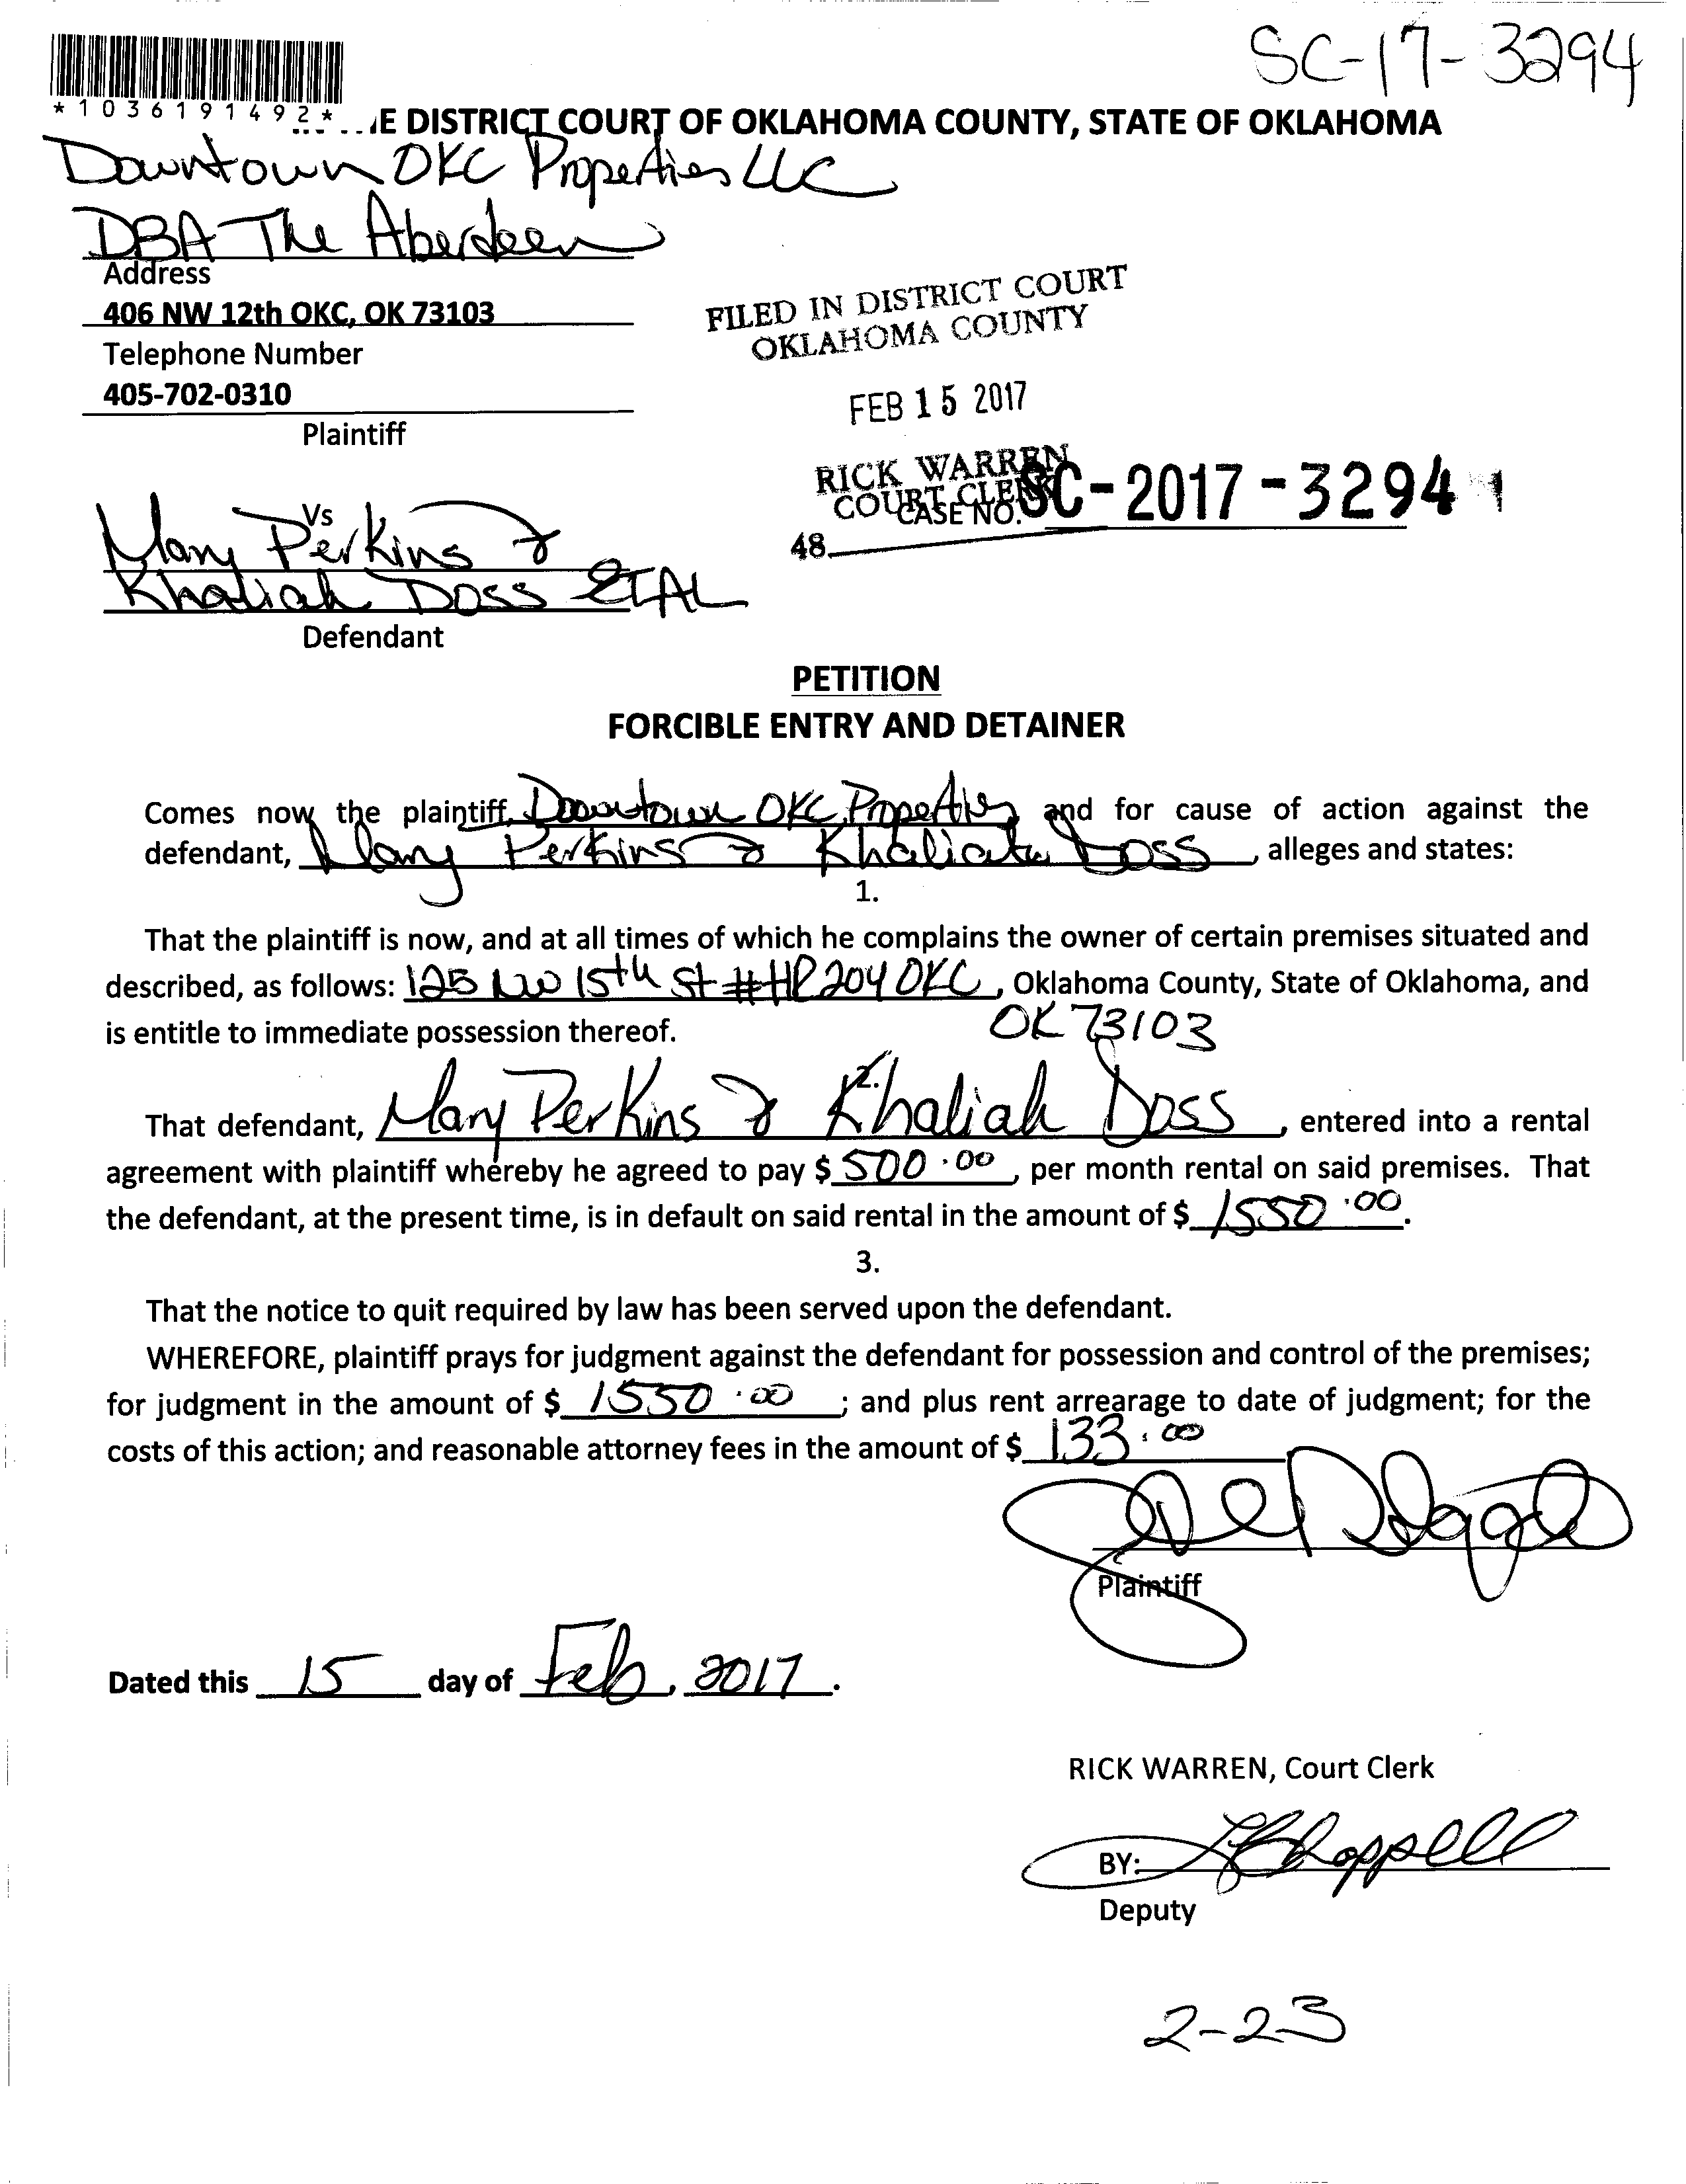 SC-17-3294
*1036191492*
E DISTRICT COURT OF OKLAHOMA COUNTY, STATE OF OKLAHOMA
Downtown OKC Properties LLC
DBA The Aberdeen
Address
406 NW 12th OKC, OK 73103
Telephone Number
405-702-0310
Plaintiff
FILED IN DISTRICT COURT
OKLAHOMA COUNTY
FEB 15 2017
RICK WARREN
COURT CLERK
CASE NO. SC-2017-3294
48
Vs
Mary Perkins &
Khaliah Doss ETAL
Defendant
PETITION
FORCIBLE ENTRY AND DETAINER
Comes now the plaintiff, Downtown OKC Properties and for cause of action against the
defendant, Mary Perkins & Khaliah Doss, alleges and states:
1.
That the plaintiff is now, and at all times of which he complains the owner of certain premises situated and
described, as follows: 125 NW 15th St #HP204 OKC, Oklahoma County, State of Oklahoma, and
is entitle to immediate possession thereof. OK 73103
2.
That defendant, Mary Perkins & Khaliah Doss, entered into a rental
agreement with plaintiff whereby he agreed to pay $ 500.00, per month rental on said premises. That
the defendant, at the present time, is in default on said rental in the amount of $ 1550.00.
3.
That the notice to quit required by law has been served upon the defendant.
WHEREFORE, plaintiff prays for judgment against the defendant for possession and control of the premises;
for judgment in the amount of $ 1550.00; and plus rent arrearage to date of judgment; for the
costs of this action; and reasonable attorney fees in the amount of $ 133.00
Plaintiff
Dated this 15 day of Feb, 2017.
RICK WARREN, Court Clerk
BY: Chappell
Deputy
2-23